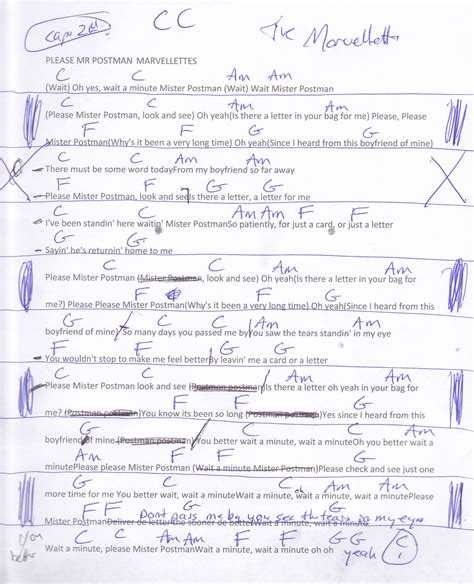 Capo 2nd CC The Marvelletts
PLEASE MR POSTMAN MARVELLETTES
C C Am Am
(Wait) Oh yes, wait a minute Mister Postman (Wait) Wait Mister Postman
C C Am
(Please Mister Postman, look and see) Oh yeah(Is there a letter in your bag for me) Please, Please
F F G G
Mister Postman(Why's it been a very long time) Oh yeah(Since I heard from this boyfriend of mine)
C C Am Am
There must be some word todayFrom my boyfriend so far away
F F G G
Please Mister Postman, look and seeIs there a letter, a letter for me
C C Am Am F F
I've been standin' here waitin' Mister PostmanSo patiently, for just a card, or just a letter
G G
Sayin' he's returnin' home to me
C C Am
Please Mister Postman (Mister Postman, look and see) Oh yeah(Is there a letter in your bag for
F F G
me?) Please Please Mister Postman(Why's it been a very long time) Oh yeah(Since I heard from this
G C C Am Am
boyfriend of mine) So many days you passed me byYou saw the tears standin' in my eye
F F G G
You wouldn't stop to make me feel betterBy leavin' me a card or a letter
C C Am Am
Please Mister Postman look and see (Postman postman)Is there a letter oh yeah in your bag for
F F G
me? (Postman postman)You know its been so long (Postman postman)Yes since I heard from this
G C C Am
boyfriend of mine (Postman postman)You better wait a minute, wait a minuteOh you better wait a
Am F F G
minutePlease please Mister Postman (Wait a minute Mister Postman)Please check and see just one
G C C oh Am Am
more time for me You better wait, wait a minuteWait a minute, wait a minute, wait a minute
F F Dont pass me by you see the tears in my eyes
Mister PostmanDeliver de letter the sooner de betterWait a minute, wait a minute
you better C Am F F G G yeah C
Wait a minute, please Mister PostmanWait a minute, wait a minute oh oh